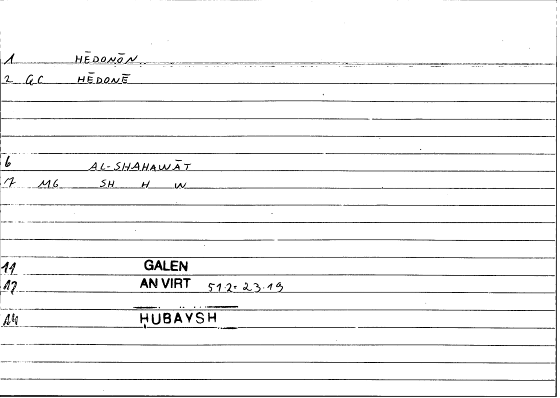 1 HĒDONŌN
2 GC HĒDONĒ
6 AL-SHAHAWĀT
7 MG SH H W
11 GALEN
12 AN VIRT 51.2= 23.19
14 ḤUBAYSH